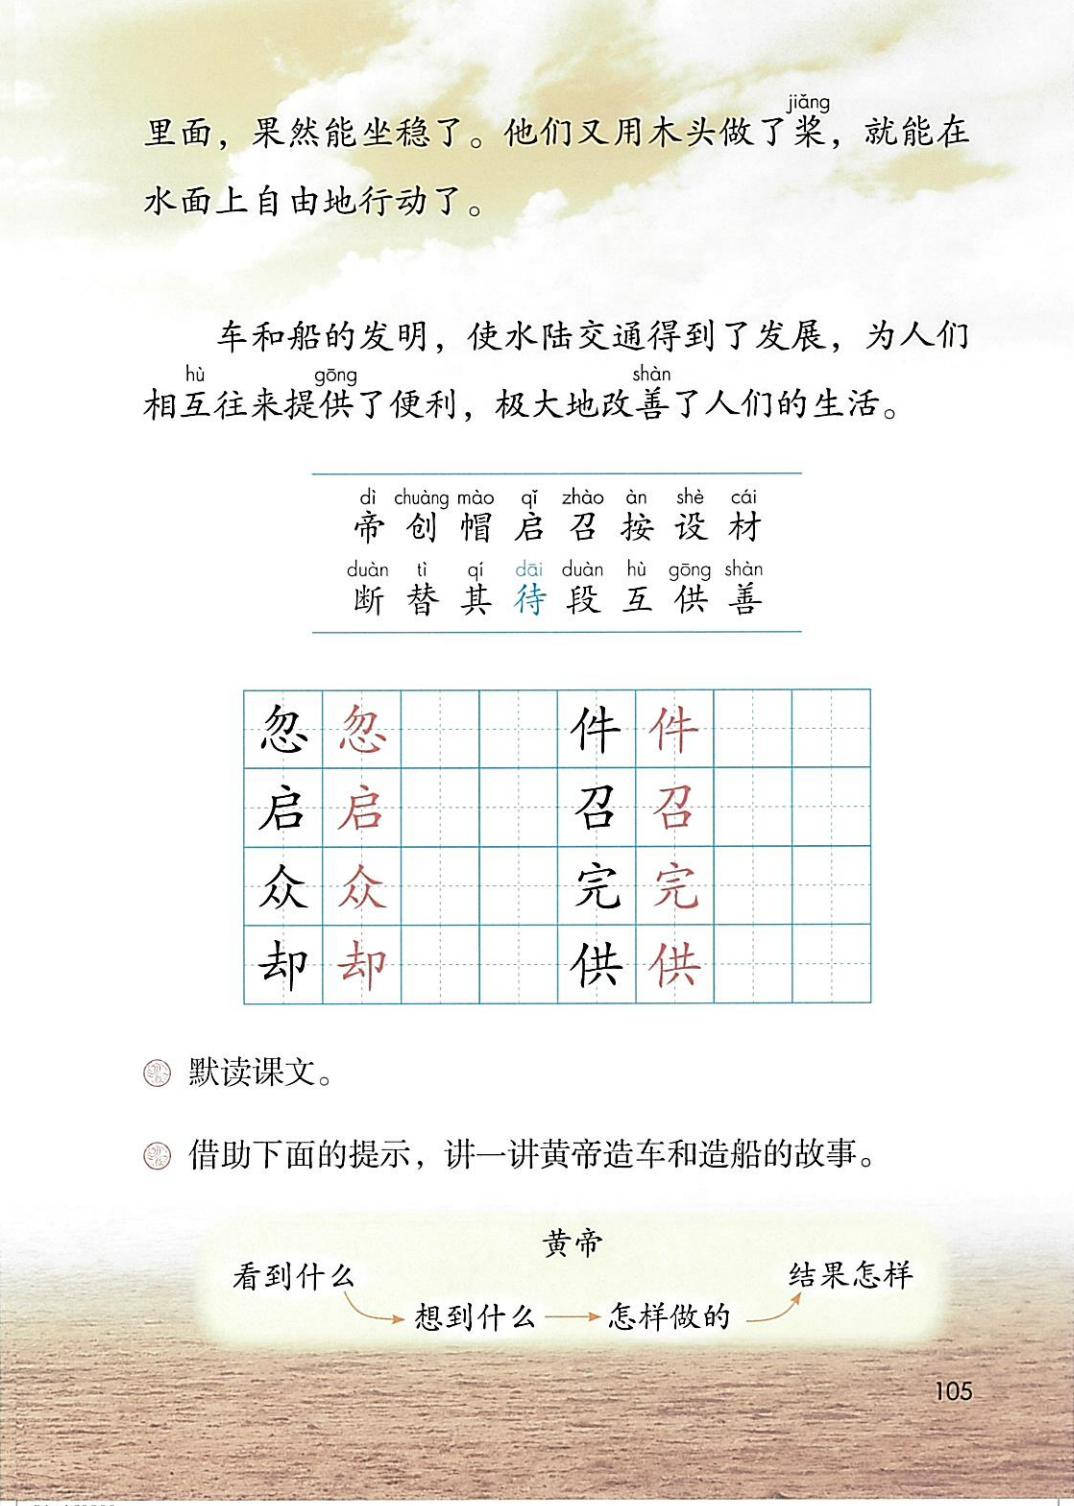 jiǎng
里面，果然能坐稳了。他们又用木头做了桨，就能在
水面上自由地行动了。
车和船的发明，使水陆交通得到了发展，为人们
hù gōng shàn
相互往来提供了便利，极大地改善了人们的生活。
dì chuàng mào qǐ zhào àn shè cái
帝 创 帽 启 召 按 设 材
duàn tì qí dāi duàn hù gōng shàn
断 替 其 待 段 互 供 善
忽 忽 件 件
启 启 召 召
众 众 完 完
却 却 供 供
默读课文。
借助下面的提示，讲一讲黄帝造车和造船的故事。
黄帝
看到什么 结果怎样
想到什么 怎样做的
105